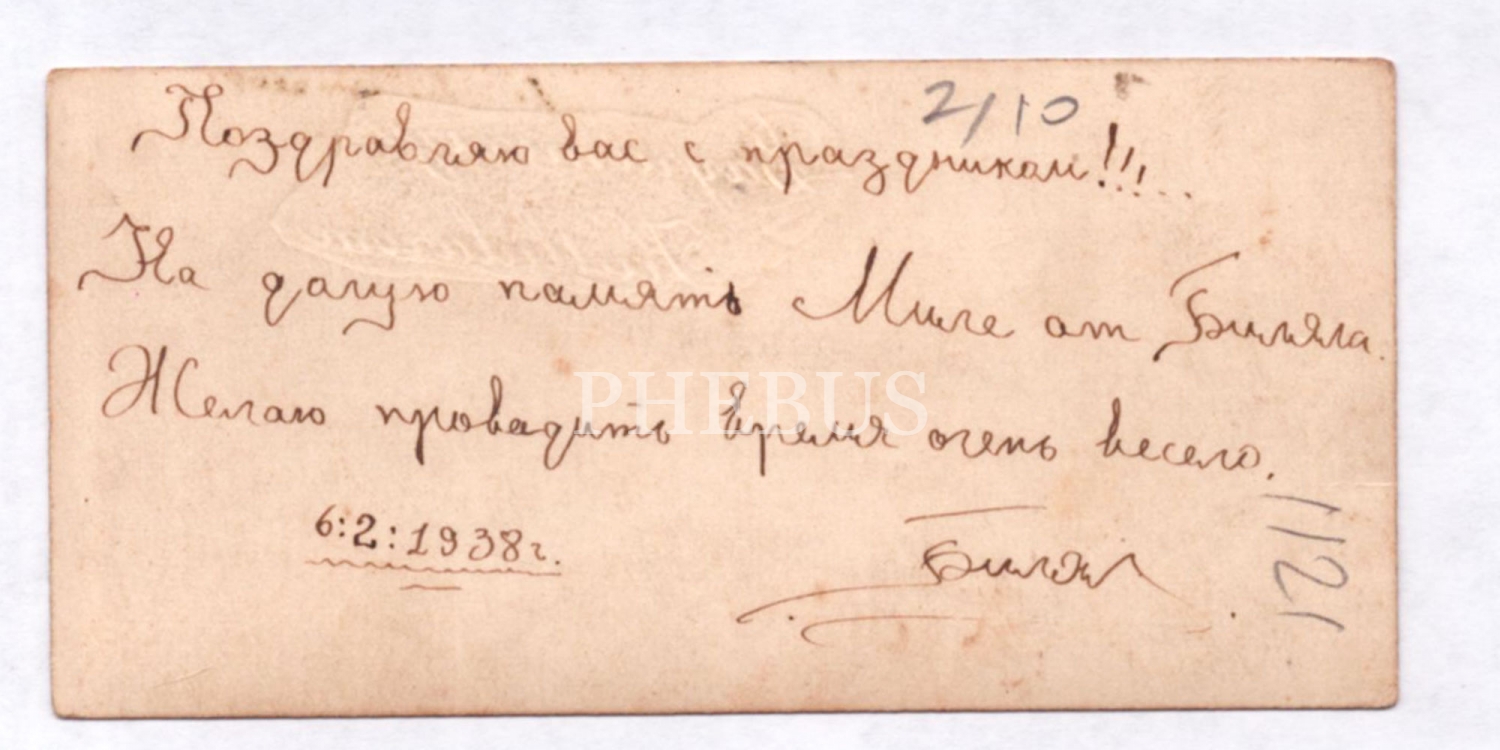 2/10
Поздравляю вас с праздником!!!...
На далую память Миле от Биляла.
Желаю провадить время очень весело.
PHEBUS
6:2:1938г.
Билял
1121